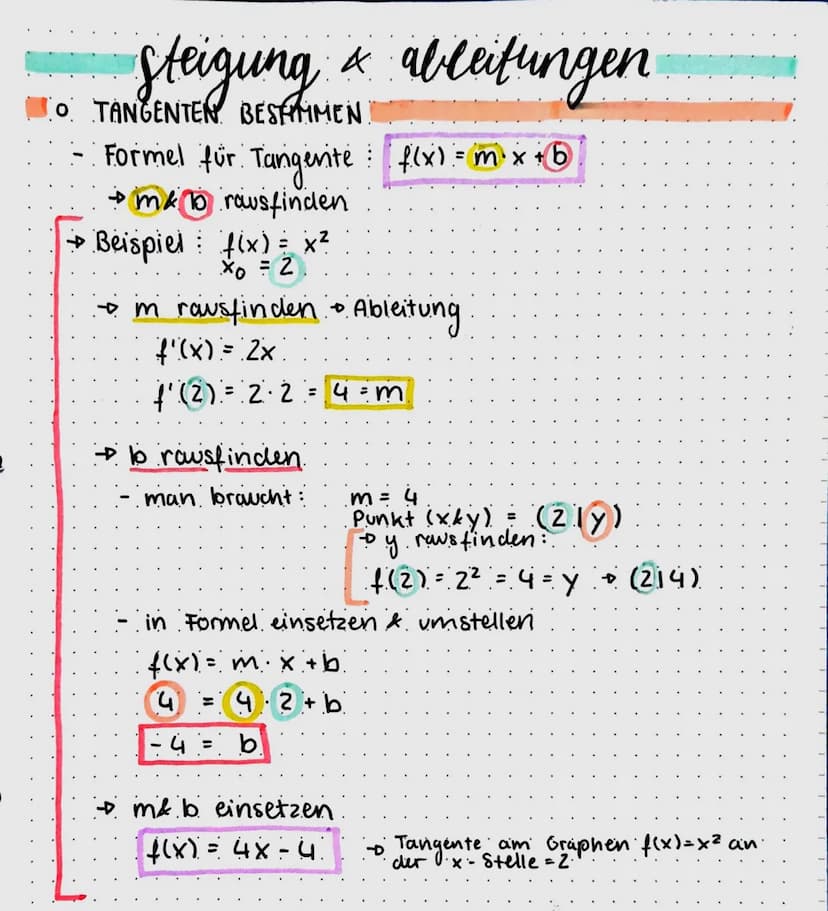 steigung & ableitungen
o TANGENTEN BESTIMMEN
- Formel für Tangente : f(x) = m · x + b
→ m & b rausfinden
→ Beispiel : f(x) = x²
x₀ = 2
→ m rausfinden → Ableitung
f'(x) = 2x
f'(2) = 2 · 2 = 4 = m
→ b rausfinden
- man braucht : m = 4
Punkt (x&y) = (2|y)
→ y rausfinden :
f(2) = 2² = 4 = y → (2|4)
- in Formel einsetzen & umstellen
f(x) = m · x + b
4 = 4 · 2 + b
- 4 = b
→ m & b einsetzen
f(x) = 4x - 4 → Tangente am Graphen f(x)=x² an
der x-Stelle = 2